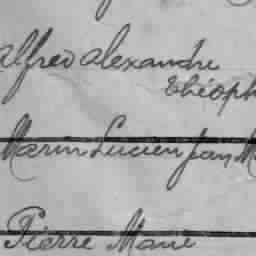 Alfred Alexandre
Théoph
Marin Lucien Jean M
Pierre Marie